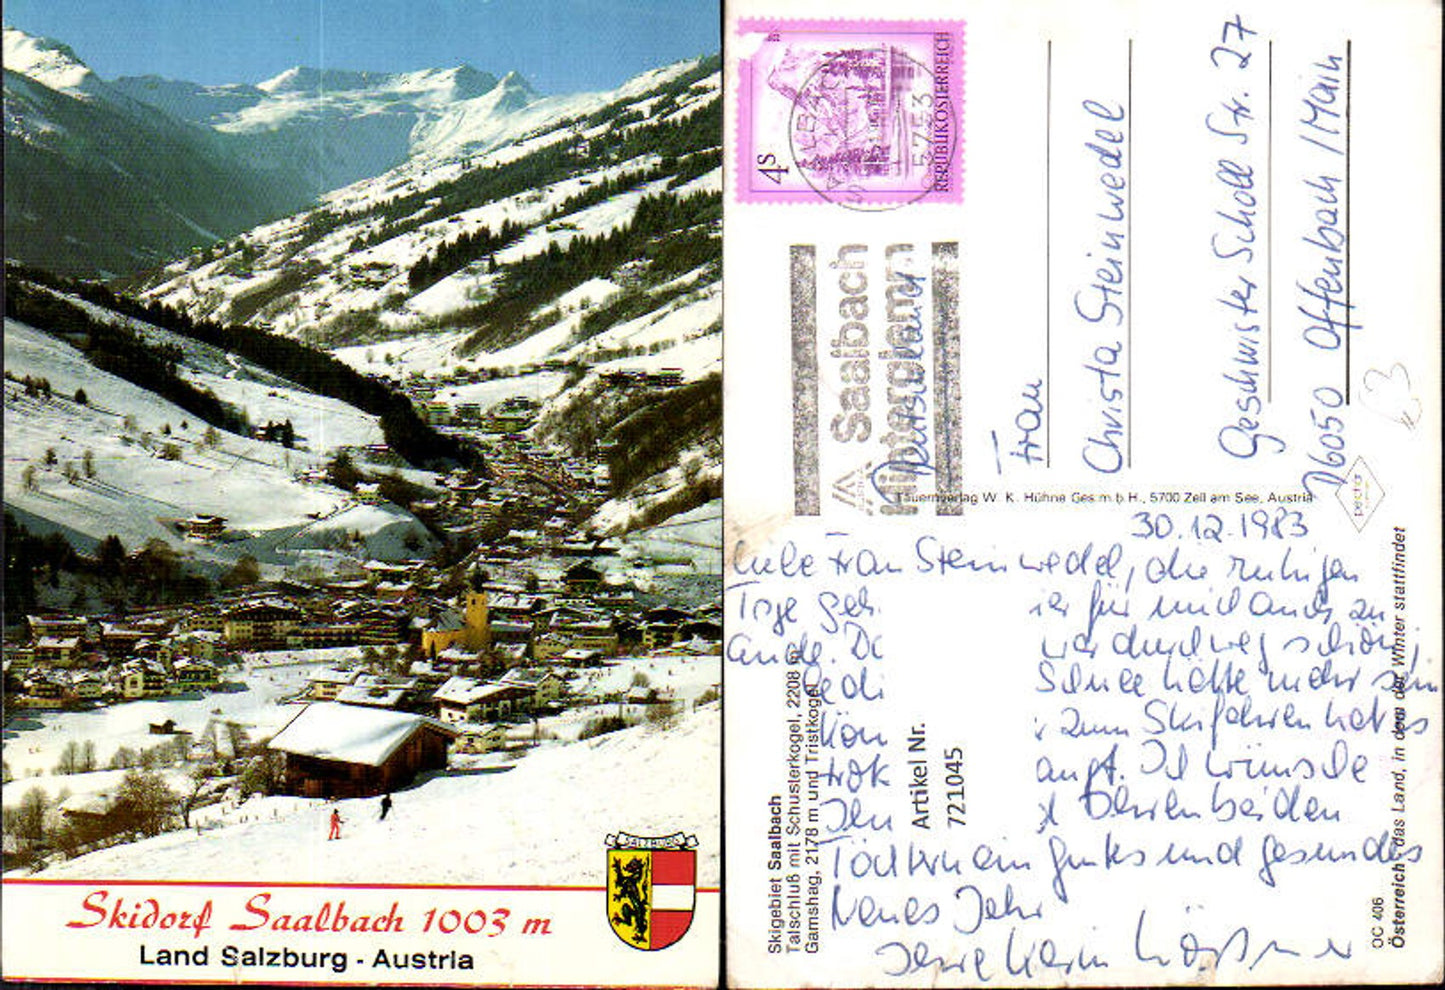 SALZBURG
Skidorf Saalbach 1003 m
Land Salzburg - Austria
4 S
REPUBLIK ÖSTERREICH
SAALBACH
5753
Saalbach
Hinterglemm
Deutschland
Frau
Christa Steinwedel
Geschwister Scholl Str. 27
D6050 Offenbach / Main
Tauernverlag W. K. Hühne Ges.m.b.H., 5700 Zell am See, Austria
30.12.1983
Liebe Frau Steinwedel, die ruhigen
Tage geh ier für mich auch zu
Ende. Da war durchweg schön,
Schnee hätte mehr sein
kön zum Skifahren hat es
trotz
Ihn Ihren beiden
Töchtern ein gutes und gesundes
Neues Jahr
Ihre Karin
Artikel Nr.
721045
Skigebiet Saalbach
Talschluß mit Schusterkogel, 2208 m
Gamshag, 2178 m und Tristkogel
OC 406
Österreich - das Land, in dem der Winter stattfindet